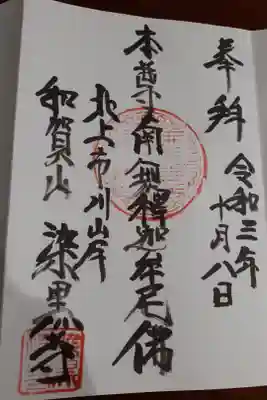 奉拝
令和三年
十月八日
本尊南無釋迦牟尼佛
北上市川岸
和賀山 染黒寺